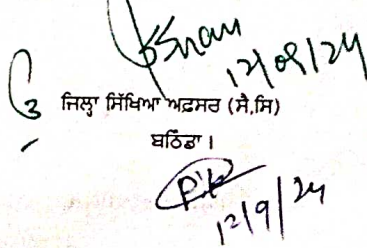 12/09/24
ਜਿਲ੍ਹਾ ਸਿੱਖਿਆ ਅਫ਼ਸਰ (ਸੈ,ਸਿ)
ਬਠਿੰਡਾ ।
12/9/24